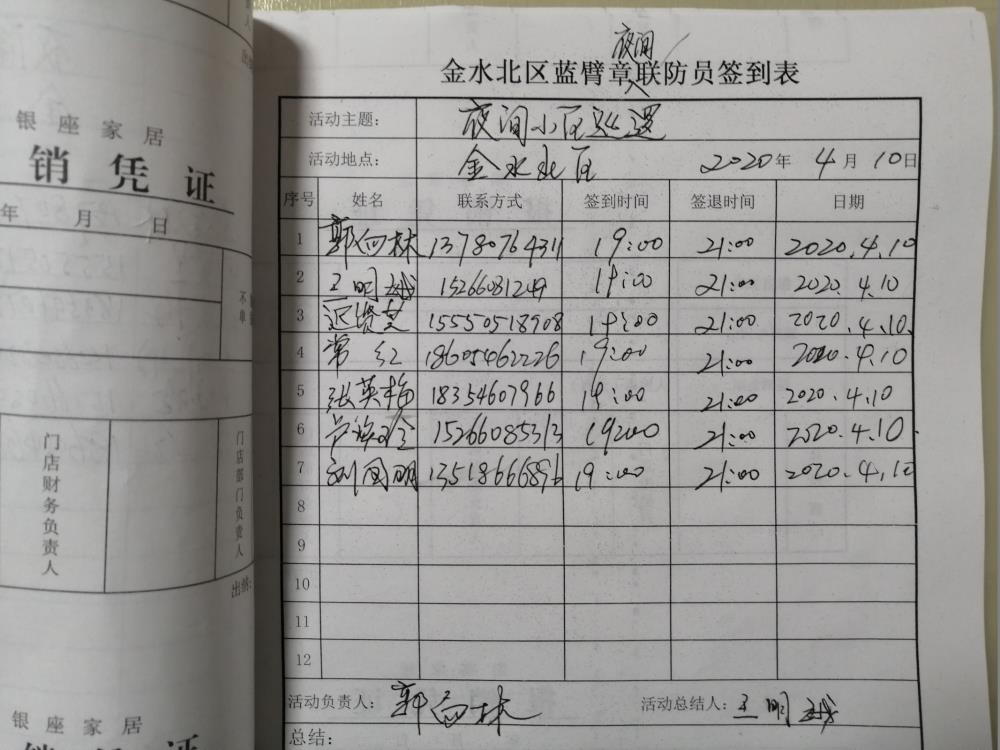 银座家居
销凭证
年 月 日
不 单
门店财务负责人
门店部门负责人
出纳:
银座家居
夜间
金水北区蓝臂章联防员签到表
活动主题: 夜间小区巡逻
活动地点: 金水北区 2020年 4月 10日
序号 姓名 联系方式 签到时间 签退时间 日期
1 郭向林 13780764311 19:00 21:00 2020.4.10
2 王明 15266081249 19:00 21:00 2020.4.10
3 15550518908 19:00 21:00 2020.4.10
4 常红 18605462226 19:00 21:00 2020.4.10
5 张英梅 18354607966 19:00 21:00 2020.4.10
6 15266085313 19:00 21:00 2020.4.10
7 刘国明 13518666896 19:00 21:00 2020.4.10
8
9
10
11
12
活动负责人: 郭向林 活动总结人: 王明
总结: